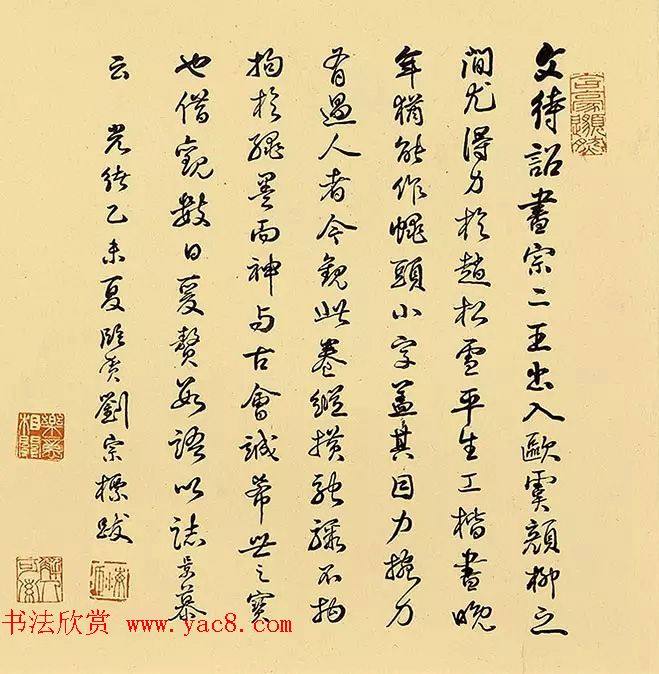 文待詔書宗二王出入歐虞顏柳之
間尤得力於趙松雪平生工楷書晚
年猶能作蠅頭小字蓋其目力腕力
有過人者今觀此卷縱橫馳驟不拘
拘於繩墨而神與古會誠希世之寶
也借觀數日爰贅數語以誌景慕
云 光緒乙未夏臨賀劉宗標跋
书法欣赏 www.yac8.com